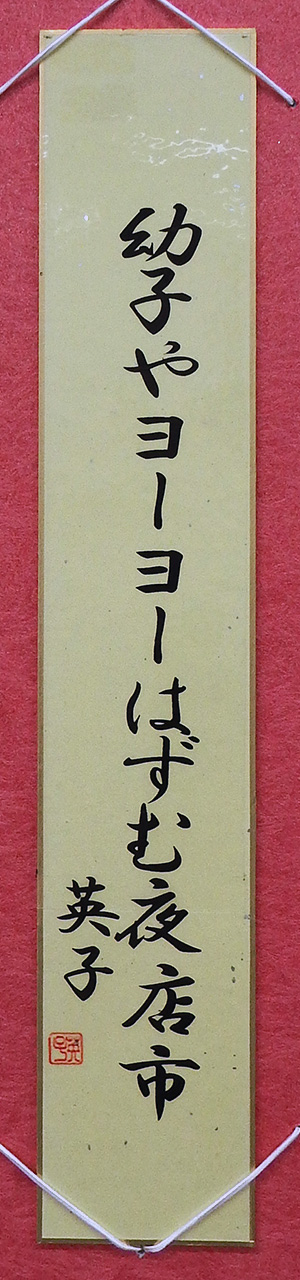 幼子やヨーヨーはずむ夜店市
英子